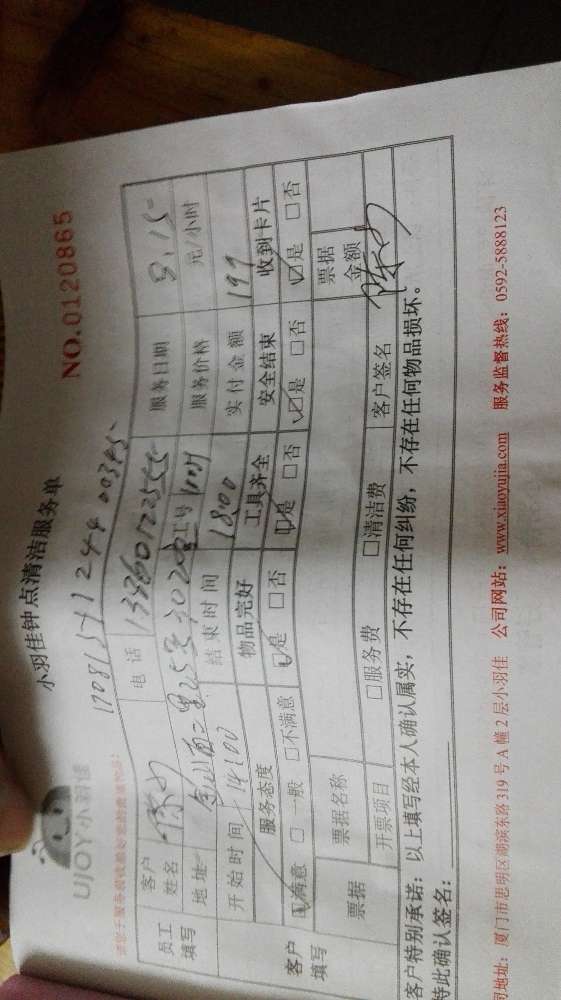 UJOY小羽佳
小羽佳钟点清洁服务单
NO.0120865
员工填写
客户姓名
电话
服务日期 8.15
地址
工号
服务价格 元/小时
开始时间 14:00
结束时间 18:00
实付金额 199
客户填写
服务态度 物品完好 工具齐全 安全结束 收到卡片
☑满意 □一般 □不满意 ☑是 □否 ☑是 □否 ☑是 □否 ☑是 □否
票据
票据名称
票据金额
开票项目 □服务费 □清洁费 客户签名
客户特别承诺：以上填写经本人确认属实，不存在任何纠纷，不存在任何物品损坏。
特此确认签名：
地址：厦门市思明区湖滨东路319号A幢2层小羽佳 公司网站：www.xiaoyujia.com 服务监督热线：0592-5888123